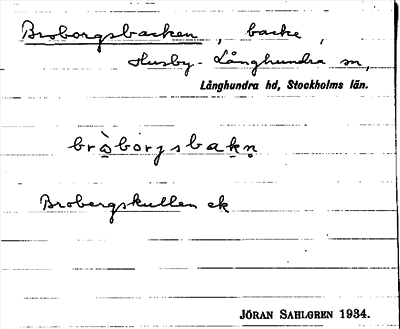 Broborgsbacken, backe,
Husby-Långhundra sn,
Långhundra hd, Stockholms län.
brò̤borjsbakn̥
Brobergskullen ek
JÖRAN SAHLGREN 1934.